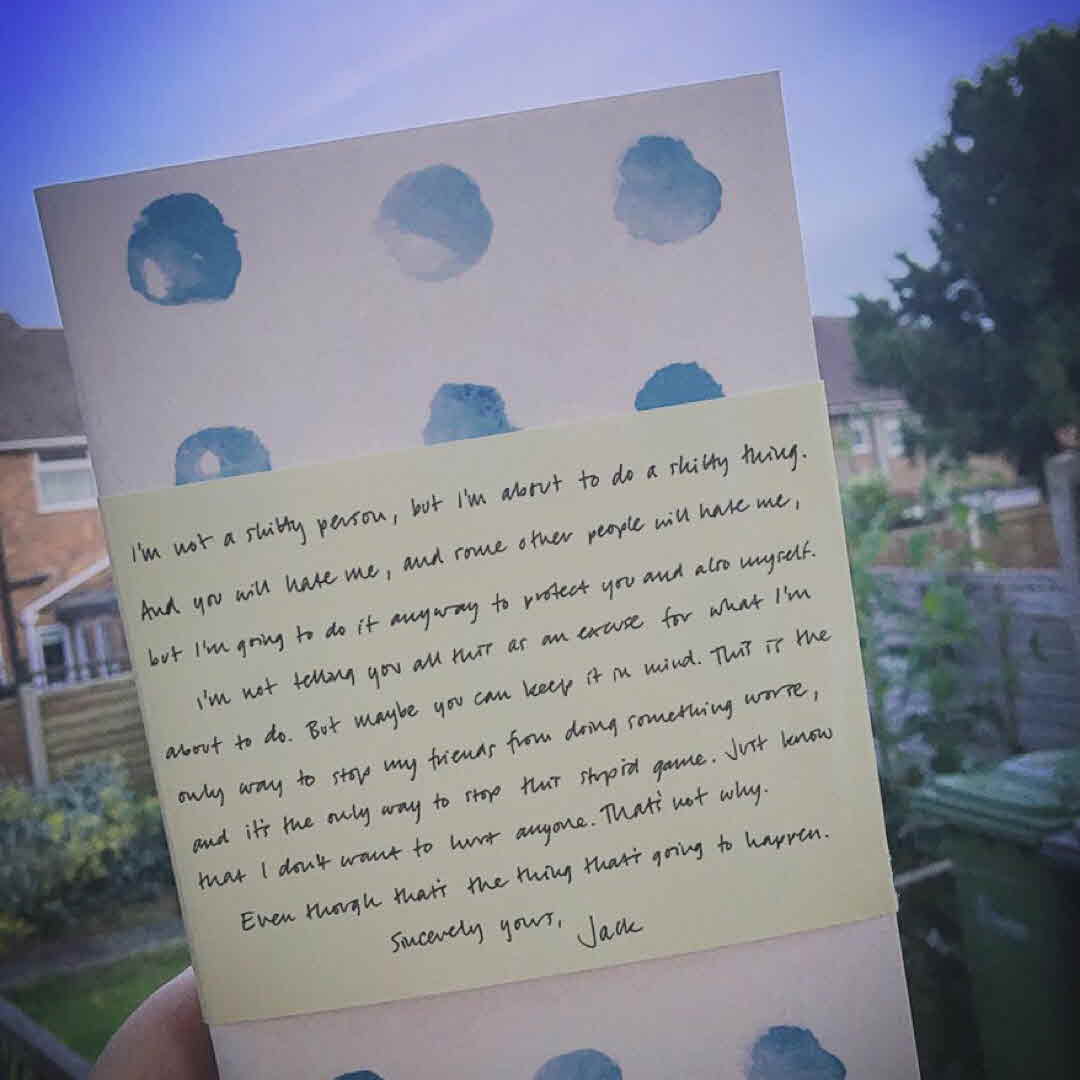 I'm not a shitty person, but I'm about to do a shitty thing.
And you will hate me, and some other people will hate me,
but I'm going to do it anyway to protect you and also myself.
I'm not telling you all this as an excuse for what I'm
about to do. But maybe you can keep it in mind. This is the
only way to stop my friends from doing something worse,
and it's the only way to stop this stupid game. Just know
that I don't want to hurt anyone. That's not why.
Even though that's the thing that's going to happen.
Sincerely yours,
Jack